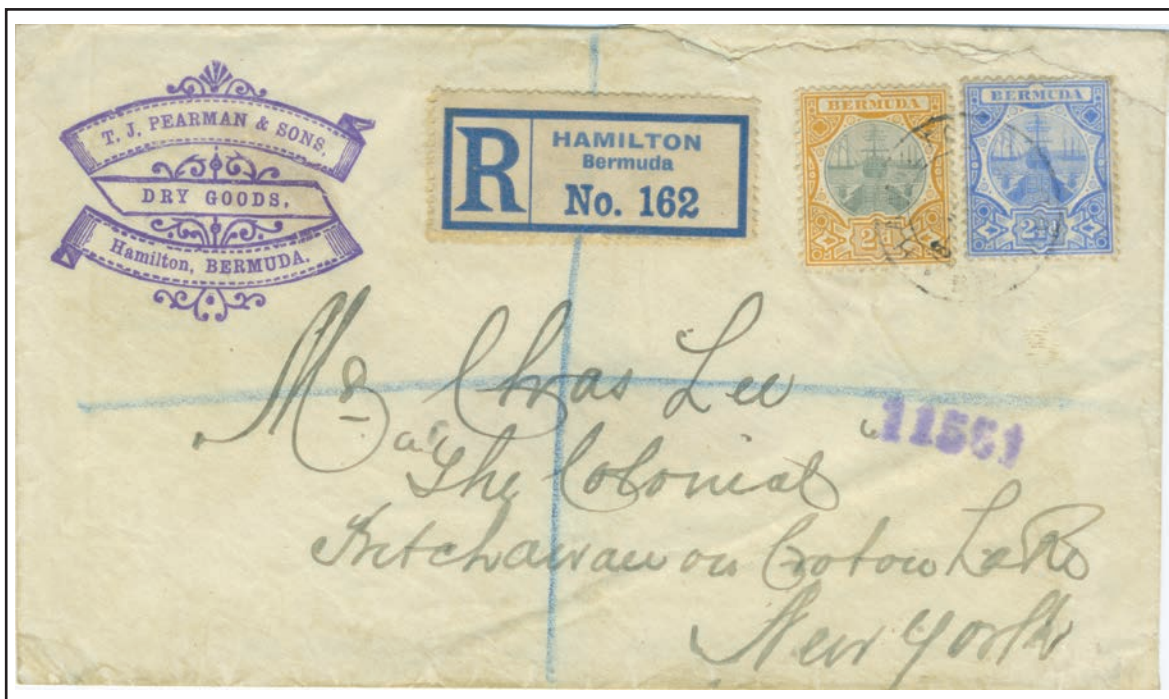 T. J. PEARMAN & SONS,
DRY GOODS,
Hamilton, BERMUDA.
R
HAMILTON
Bermuda
No. 162
BERMUDA
2d
BERMUDA
2½d
Mr Chas Lee
The Colonial
on Croton Lake
New York